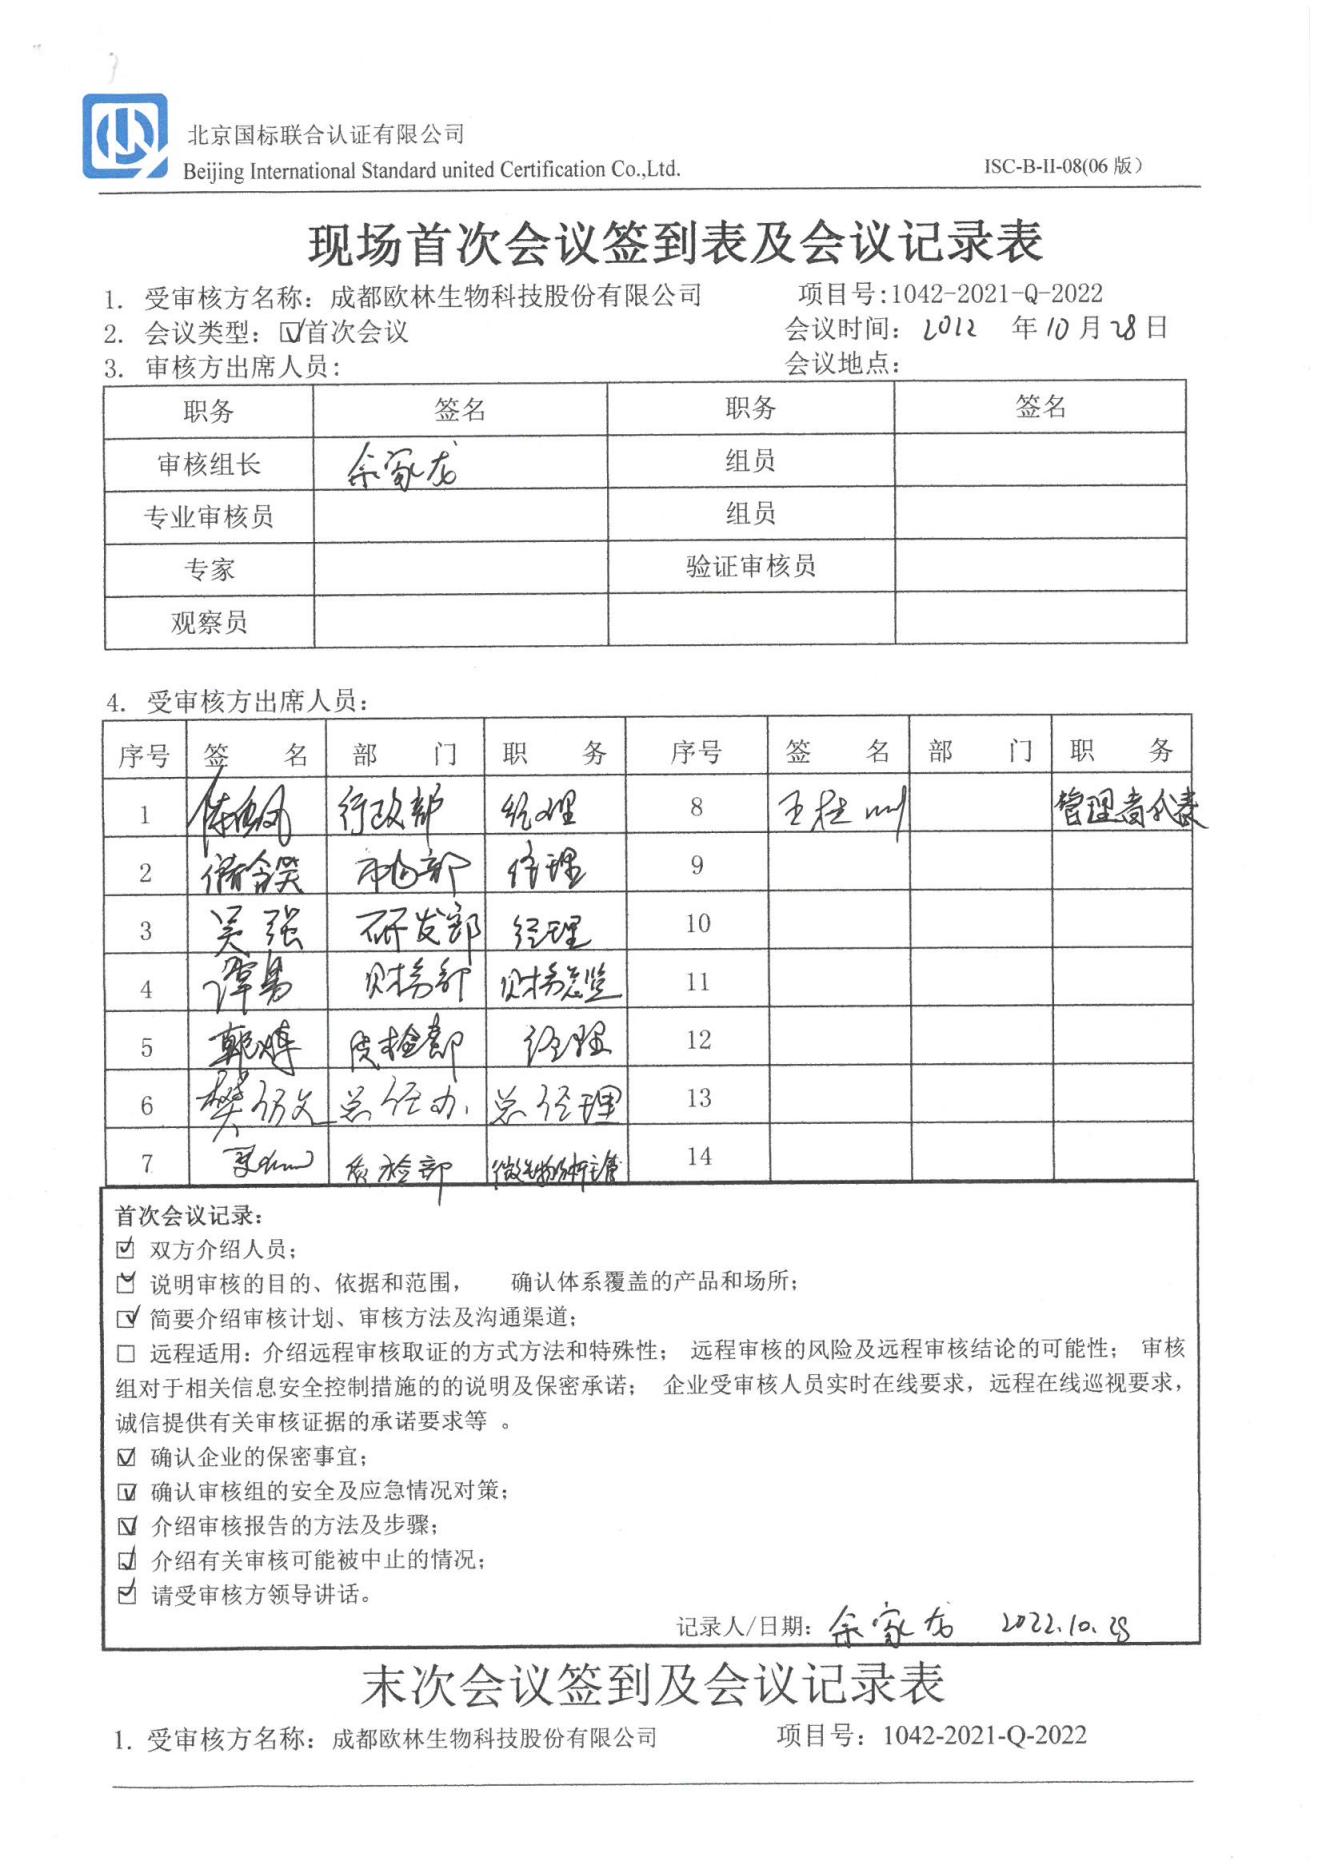 北京国标联合认证有限公司
Beijing International Standard united Certification Co.,Ltd.
ISC-B-II-08(06 版)
现场首次会议签到表及会议记录表
1. 受审核方名称：成都欧林生物科技股份有限公司 项目号:1042-2021-Q-2022
2. 会议类型：☑首次会议 会议时间：2022 年10月28日
3. 审核方出席人员： 会议地点：
职务 签名 职务 签名
审核组长 余家龙 组员
专业审核员 组员
专家 验证审核员
观察员
4. 受审核方出席人员：
序号 签 名 部 门 职 务 序号 签 名 部 门 职 务
1 行政部 经理 8 管理者代表
2 市场部 经理 9
3 吴强 研发部 经理 10
4 谭易 财务部 财务总监 11
5 质检部 经理 12
6 樊钒 总经办 总经理 13
7 质检部 14
首次会议记录：
☑ 双方介绍人员；
☑ 说明审核的目的、依据和范围， 确认体系覆盖的产品和场所；
☑ 简要介绍审核计划、审核方法及沟通渠道；
□ 远程适用：介绍远程审核取证的方式方法和特殊性； 远程审核的风险及远程审核结论的可能性； 审核
组对于相关信息安全控制措施的的说明及保密承诺； 企业受审核人员实时在线要求，远程在线巡视要求，
诚信提供有关审核证据的承诺要求等 。
☑ 确认企业的保密事宜；
☑ 确认审核组的安全及应急情况对策；
☑ 介绍审核报告的方法及步骤；
☑ 介绍有关审核可能被中止的情况；
☑ 请受审核方领导讲话。
记录人/日期：余家龙 2022.10.28
末次会议签到及会议记录表
1. 受审核方名称：成都欧林生物科技股份有限公司 项目号：1042-2021-Q-2022